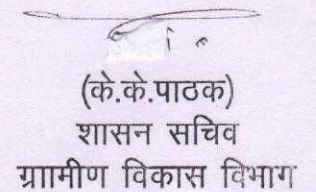 (के.के.पाठक)
शासन सचिव
ग्राामीण विकास विभाग